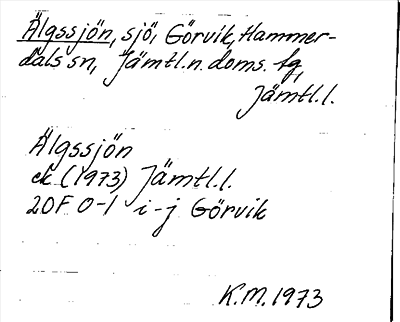 Älgssjön, sjö, Görvik, Hammer-
dals sn, Jämtl.n. doms. fg,
Jämtl.l.
Älgssjön
ek (1973) Jämtl.l.
20F 0-1 i-j Görvik
K.M. 1973